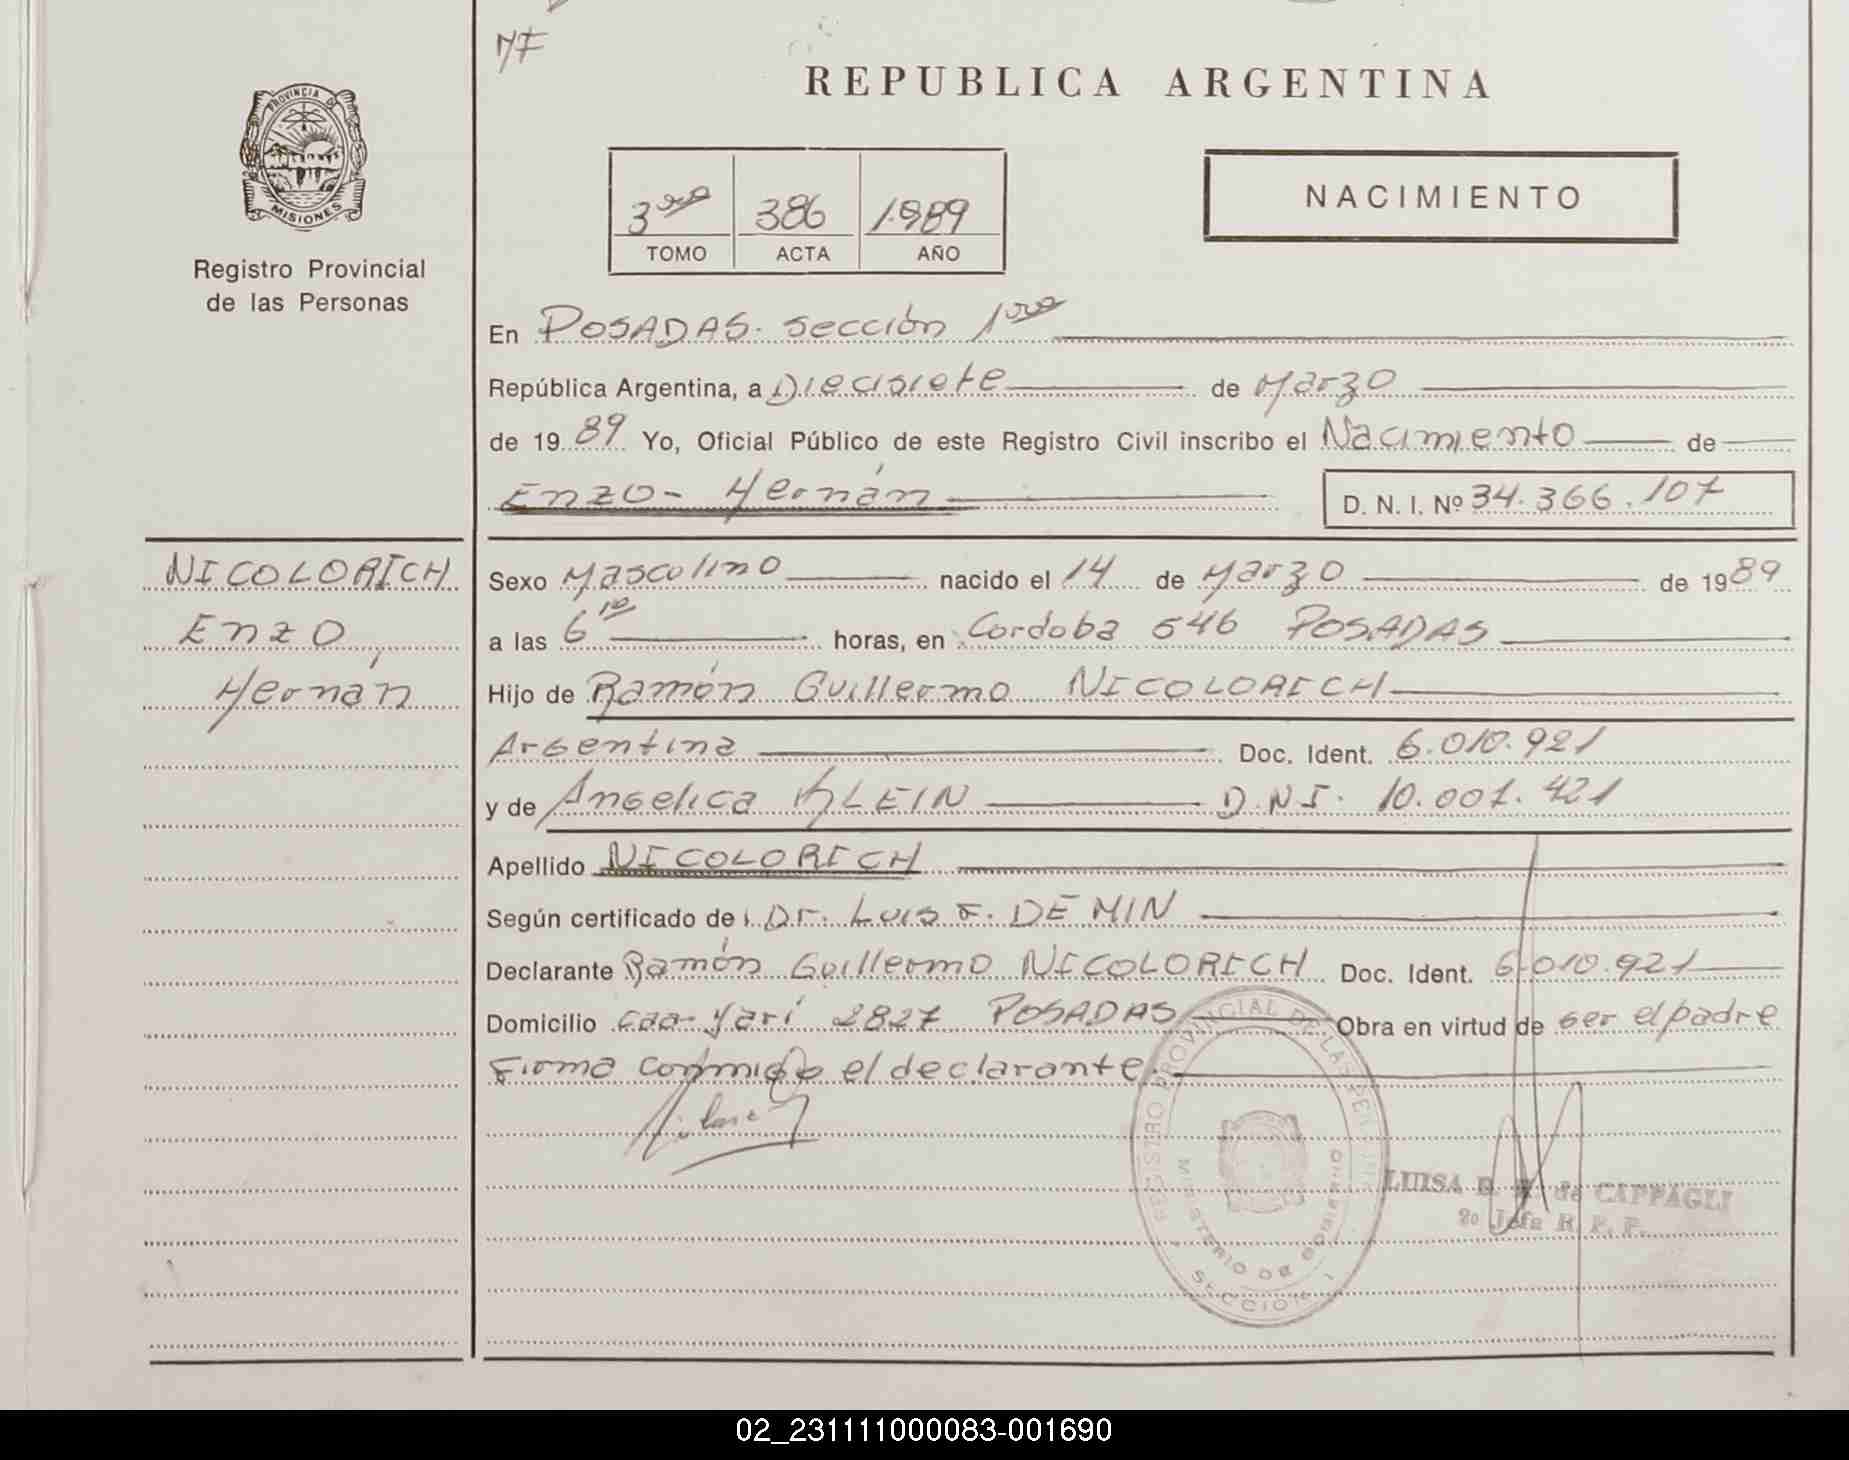 MF
REPUBLICA ARGENTINA
PROVINCIA DE
MISIONES
Registro Provincial
de las Personas
3ero 386 1989
TOMO ACTA AÑO
NACIMIENTO
En POSADAS. sección 1era
República Argentina, a Diecisiete de Marzo
de 1989 Yo, Oficial Público de este Registro Civil inscribo el Nacimiento de
Enzo- Hernán D. N. I. Nº 34.366.107
NICOLORICH
Enzo
Hernán
Sexo Masculino nacido el 14 de Marzo de 1989
a las 6 10 horas, en Cordoba 546 POSADAS
Hijo de Ramón Guillermo NICOLORICH
Argentina Doc. Ident. 6.010.921
y de Angelica KLEIN D.N.I. 10.001.421
Apellido NICOLORICH
Según certificado de Dr. Luis F. DE MIN
Declarante Ramón Guillermo NICOLORICH Doc. Ident. 6.010.921
Domicilio caa-Yarí 2827 POSADAS Obra en virtud de ser el padre
Firma conmigo el declarante.
REGISTRO PROVINCIAL DE LAS PERSONAS
MINISTERIO DE GOBIERNO
SECCION 1
LUISA de CAPPAGLI
2º Jefa R. P. P.
02_231111000083-001690